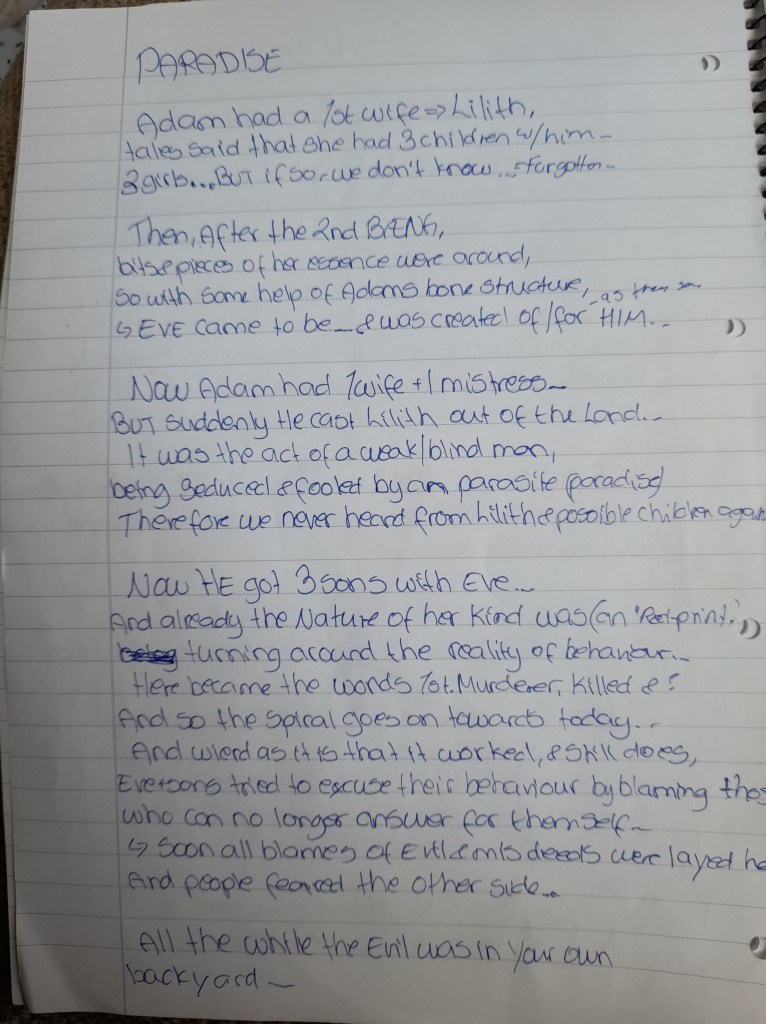 PARADISE
Adam had a 1st wife => Lilith,
tales said that she had 3 children w/him -
3 girls... BUT if so - we don't know... = forgotten -
Then, After the 2nd BÆNG,
bits & pieces of her essence were around,
so with some help of Adams bone structure, - as then
↳ EVE came to be - & was created of/for HIM...
Now Adam had 1 wife + 1 mistress -
BUT suddenly He cast Lilith out of the Land..
It was the act of a weak/blind man,
being seduced & fooled by a parasite paradise
Therefore we never heard from Lilith & possible children again
Now HE got 3 sons with Eve...
And already the Nature of her kind was (an
turning around the reality of behaviour..
Here became the words 1st. Murderer, killed & ?
And so the spiral goes on towards today...
And wierd as it is that it worked, & still does,
Eve + sons tried to excuse their behaviour by blaming
who can no longer answer for themself -
↳ Soon all blames of Evil & misdeeds were layed
And people feared the other side...
All the while the Evil was in your own
backyard -